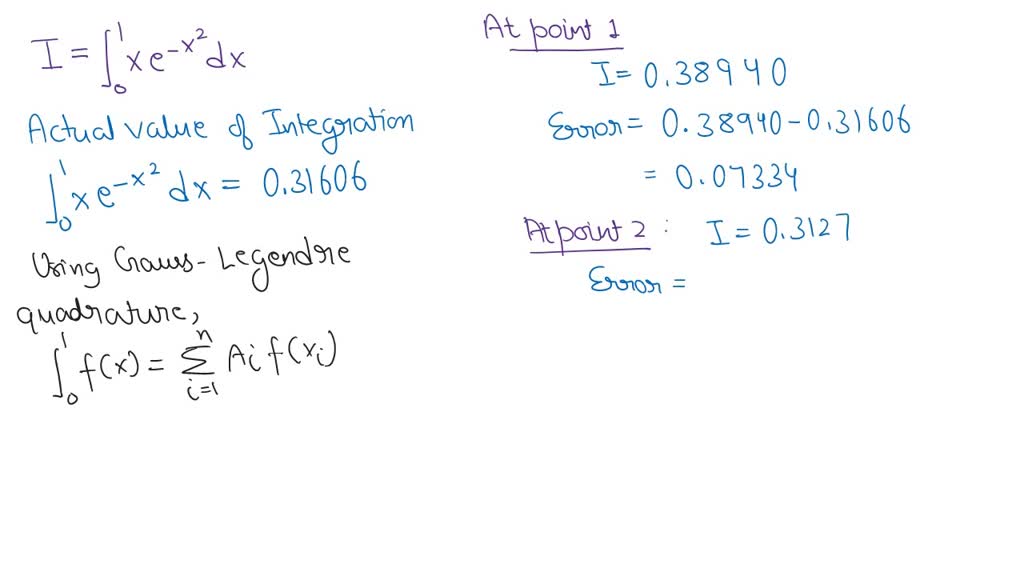 I = ∫₀¹ x e^{-x²} dx
Actual value of Integration
∫₀¹ x e^{-x²} dx = 0.31606
Using Gauss-Legendre
quadrature,
∫₀¹ f(x) = Σ_{i=1}^{n} Ai f(xi)
At point 1
I = 0.38940
Error = 0.38940 - 0.31606
= 0.07334
At point 2 : I = 0.3127
Error =